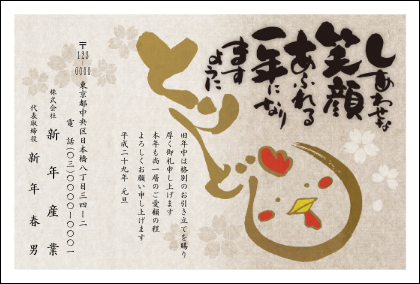 しあわせな
笑顔
あふれる
一年になり
ます
ように
とりどし
旧年中は格別のお引き立てを賜り
厚く御礼申し上げます
本年も尚一層のご愛顧の程
よろしくお願い申し上げます
平成二十九年 元旦
〒123-0000
東京都中央区日本橋八丁目三四-二
電話(〇三)〇〇〇〇-〇〇〇一
株式会社 新年産業
代表取締役 新年春男